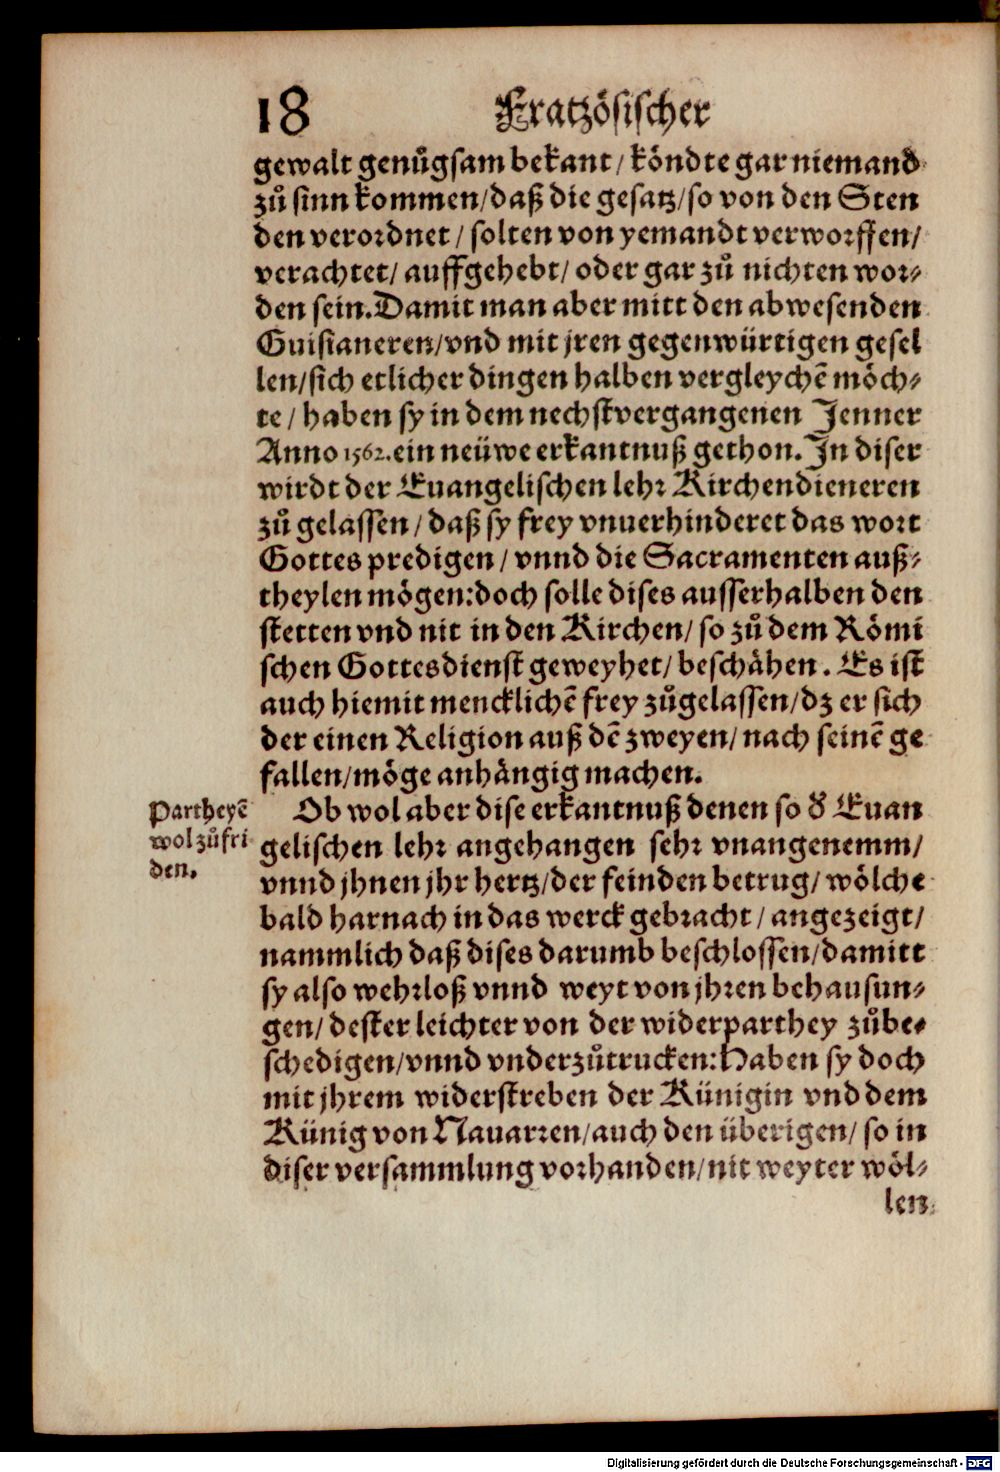 18 Fratzösischer
gewalt genůgsam bekant / köndte gar niemand
zů sinn kommen/daß die gesatz/so von den Sten
den verordnet / solten von yemandt verworffen/
verachtet/ auffgehebt/ oder gar zů nichten wor⸗
den sein.Damit man aber mitt den abwesenden
Guisianeren/vnd mit jren gegenwürtigen gesel
len/sich etlicher dingen halben vergleychē möch⸗
te / haben sy in dem nechstvergangenen Jenner
Anno 1562.ein neüwe erkantnuß gethon. In diser
wirdt der Euangelischen lehr Kirchendieneren
zů gelassen / daß sy frey vnuerhinderet das wort
Gottes predigen / vnnd die Sacramenten auß⸗
theylen mögen:doch solle dises ausserhalben den
stetten vnd nit in den Kirchen/ so zů dem Römi
schen Gottesdienst geweyhet/ beschähen. Es ist
auch hiemit mencklichē frey zůgelassen/dz er sich
der einen Religion auß dē zweyen/ nach seinē ge
fallen/möge anhängig machen.
Partheyē
wol zůfri
den.
Ob wol aber dise erkantnuß denen so d' Euan
gelischen lehr angehangen sehr vnangenemm/
vnnd jhnen jhr hertz/der feinden betrug/ wölche
bald harnach in das werck gebracht / angezeigt/
nammlich daß dises darumb beschlossen/damitt
sy also wehrloß vnnd weyt von jhren behausun⸗
gen/ dester leichter von der widerparthey zůbe⸗
schedigen/vnnd vnderzůtrucken:Haben sy doch
mit jhrem widerstreben der Künigin vnd dem
Künig von Nauarren/auch den überigen/ so in
diser versammlung vorhanden/nit weyter wöl⸗
len
Digitalisierung gefördert durch die Deutsche Forschungsgemeinschaft - DFG